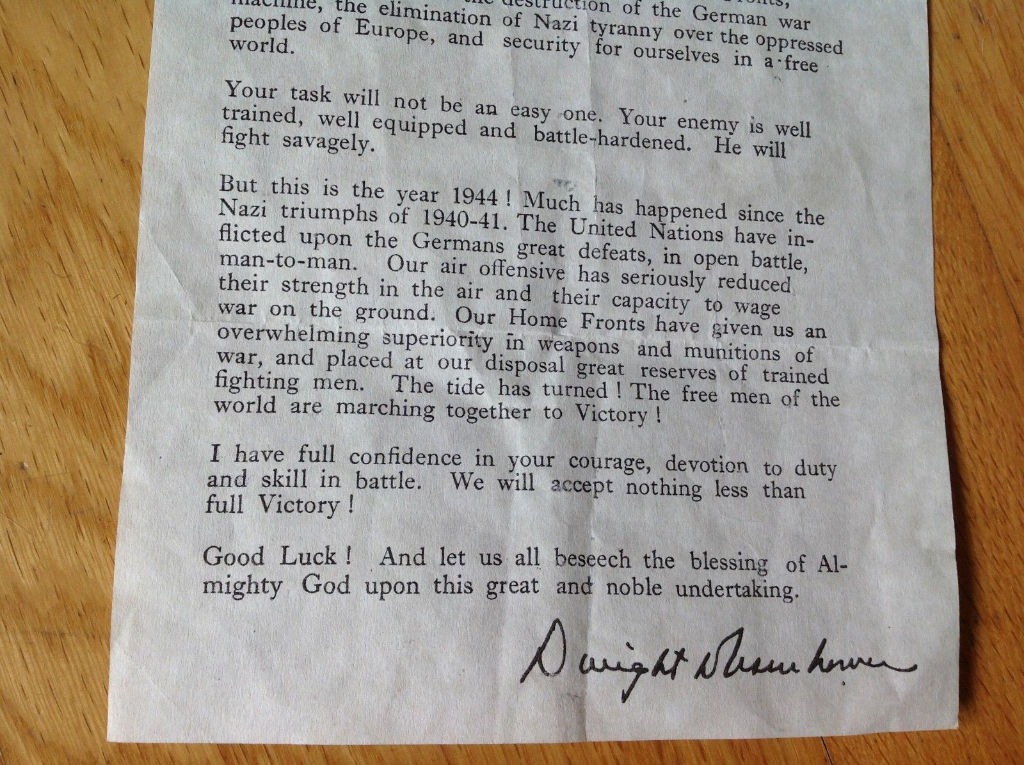 destruction of the German war
machine, the elimination of Nazi tyranny over the oppressed
peoples of Europe, and security for ourselves in a free
world.
Your task will not be an easy one. Your enemy is well
trained, well equipped and battle-hardened. He will
fight savagely.
But this is the year 1944 ! Much has happened since the
Nazi triumphs of 1940-41. The United Nations have in-
flicted upon the Germans great defeats, in open battle,
man-to-man. Our air offensive has seriously reduced
their strength in the air and their capacity to wage
war on the ground. Our Home Fronts have given us an
overwhelming superiority in weapons and munitions of
war, and placed at our disposal great reserves of trained
fighting men. The tide has turned ! The free men of the
world are marching together to Victory !
I have full confidence in your courage, devotion to duty
and skill in battle. We will accept nothing less than
full Victory !
Good Luck ! And let us all beseech the blessing of Al-
mighty God upon this great and noble undertaking.
Dwight D Eisenhower